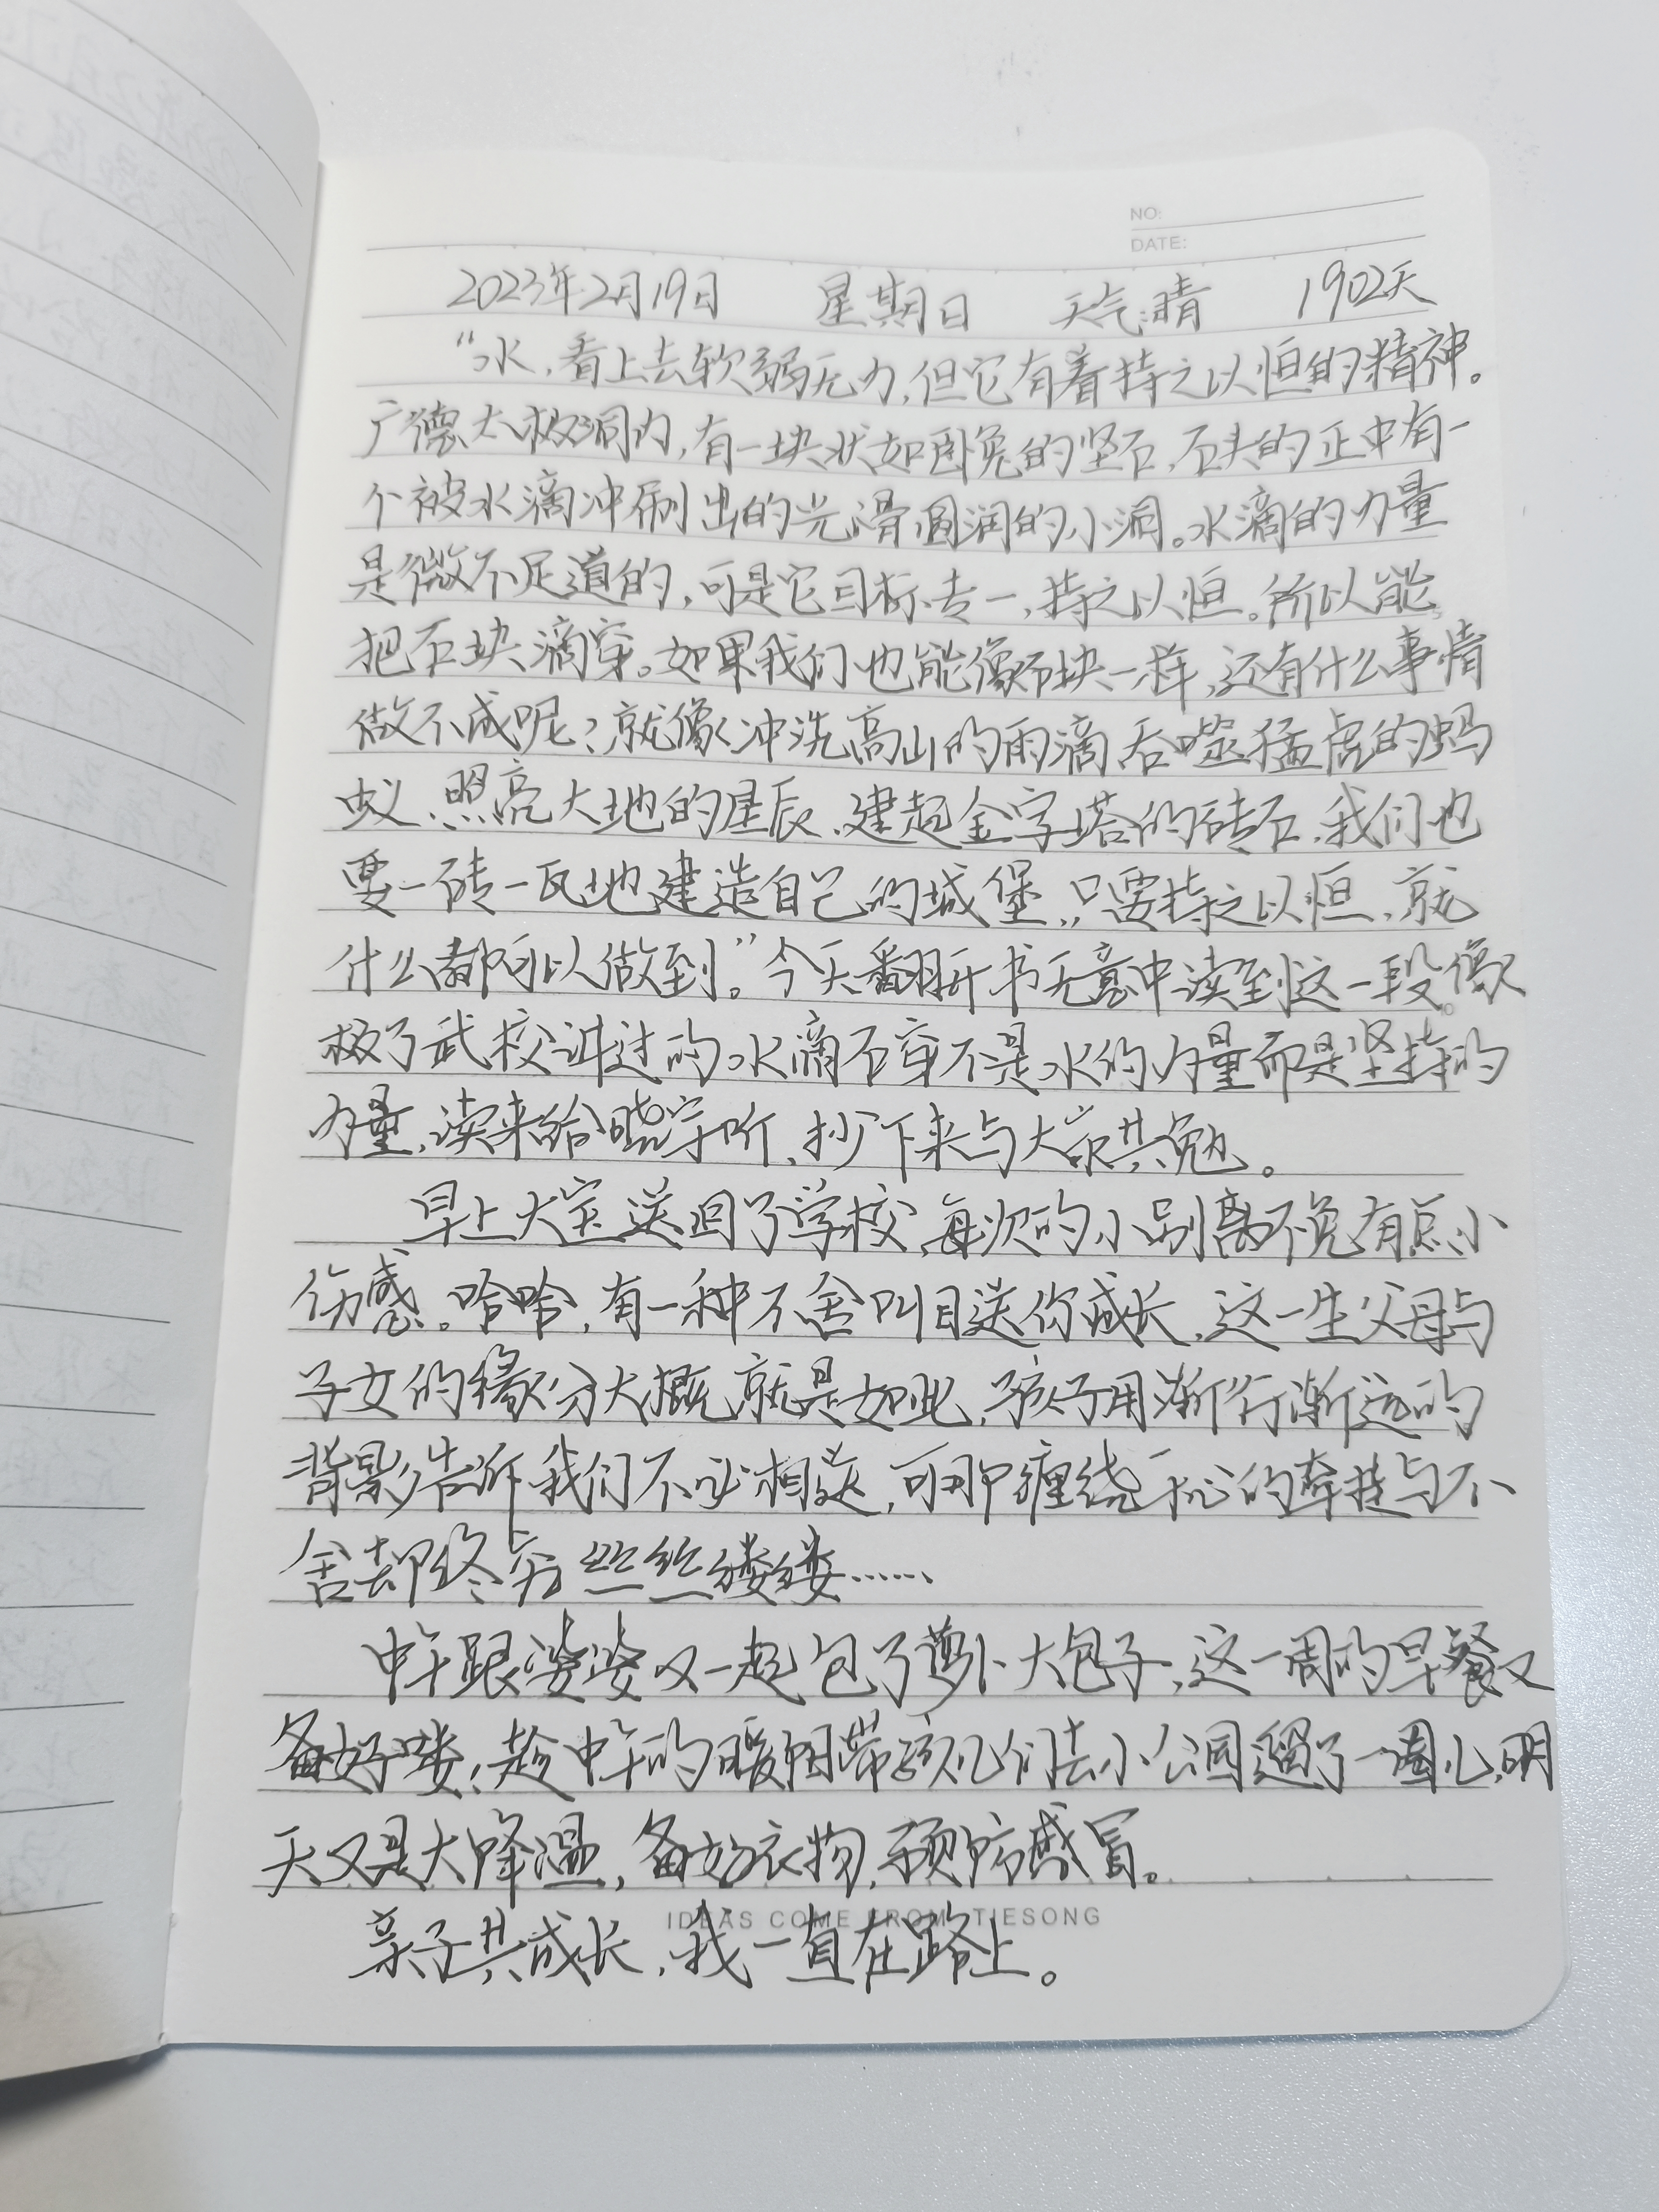 NO:
DATE:
2023年2月19日 星期日 天气:晴 1902天
“水,看上去软弱无力,但它有着持之以恒的精神。
广德太极洞内,有一块状如卧兔的坚石,石头的正中有一
个被水滴冲刷出的光滑圆润的小洞。水滴的力量
是微不足道的,可是它目标专一,持之以恒。所以能
把石块滴穿。如果我们也能像那块一样,还有什么事情
做不成呢?就像冲洗高山的雨滴吞噬猛虎的蚂
蚁、照亮大地的星辰、建起金字塔的砖石,我们也
要一砖一瓦地建造自己的城堡,只要持之以恒,就
什么都可以做到。”今天翻开书无意中读到这一段。像
极了武校讲过的水滴石穿不是水的力量而是坚持的
力量,读来给晓宇听,抄下来与大家共勉。
早上大宝送回了学校,每次的小别离不免有点小
伤感。哈哈,有一种不舍叫目送你成长,这一生父母与
子女的缘分大概就是如此,孩子用渐行渐远的
背影告诉我们不必相送,可那缠绕于心的牵挂与不
舍却终究丝丝缕缕……
中午跟婆婆又一起包了萝卜大包子,这一周的早餐又
备好喽,趁中午的暖阳带孩儿们去小公园遛了一圈儿,明
天又是大降温,备好衣物,预防感冒。
IDEAS COME FROM TIESONG
亲子共成长,我一直在路上。